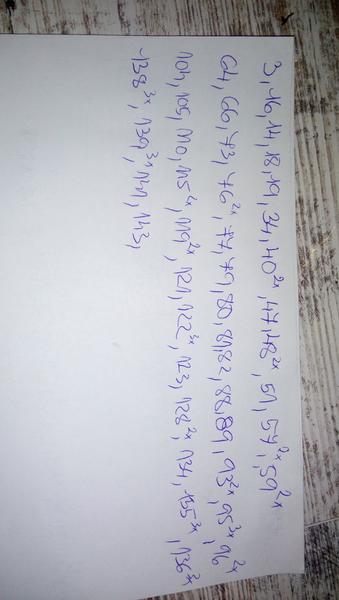 3, 10, 14, 18, 19, 34, 40²ˣ, 47, 48²ˣ, 51, 57²ˣ, 59²ˣ
64, 66, 73, 76²ˣ, 77, 79, 80, 81, 82, 88, 89, 93²ˣ, 95³ˣ, 96²ˣ
104, 109, 110, 115²ˣ, 119²ˣ, 121, 122³ˣ, 123, 128²ˣ, 134, 135³ˣ, 136³ˣ
138³ˣ, 139³ˣ, 141, 143,